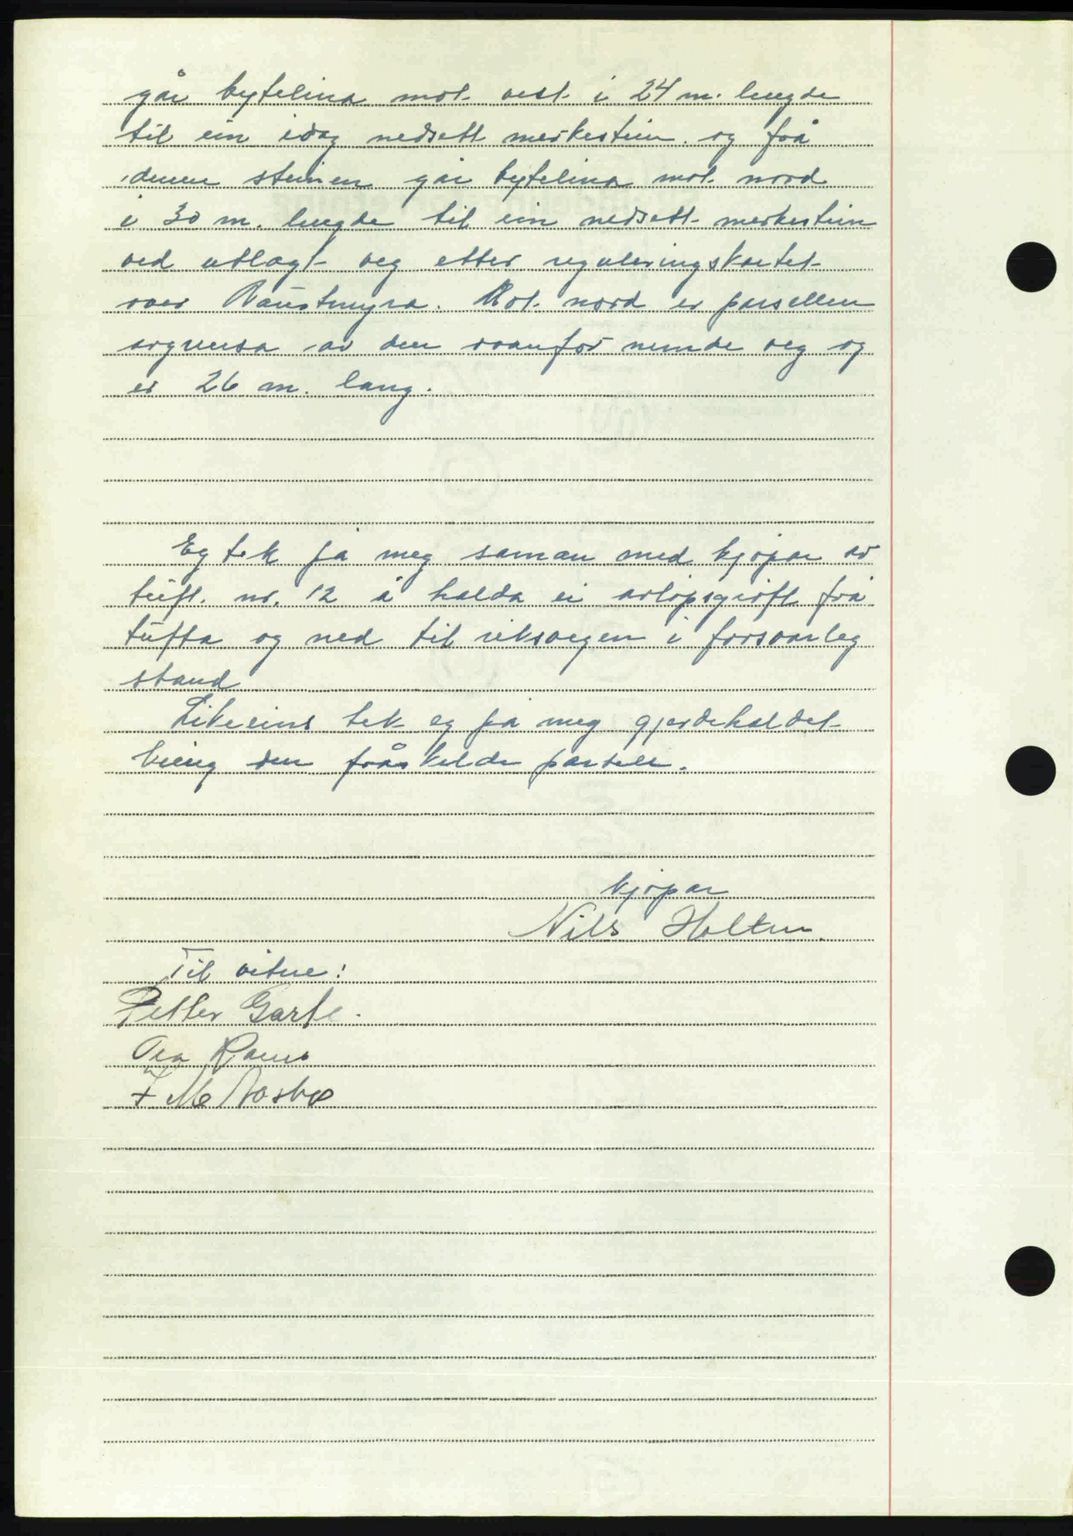 går bytelina mot vest i 24 m. lengde
til ein idag nedsett merkestein og frå
denen steinen går bytelina mot nord
i 30 m. lengde til ein nedsett merkestein
ved utlagt veg etter reguleringskartet
over Naustmyra. Mot nord er parsellen
avgrensa av den ovanfor nemde veg og
er 26 m. lang.
Eg tek på meg saman med kjøpar av
tuft. nr. 12 å halda ei avløpsgrøft frå
tufta og ned til riksvegen i forsvarleg
stand
Likeeins tek eg på meg gjerdehaldet
kring den fråskelde parsell.
kjøpar
Nils Holten.
Til vitne:
Petter Garte.